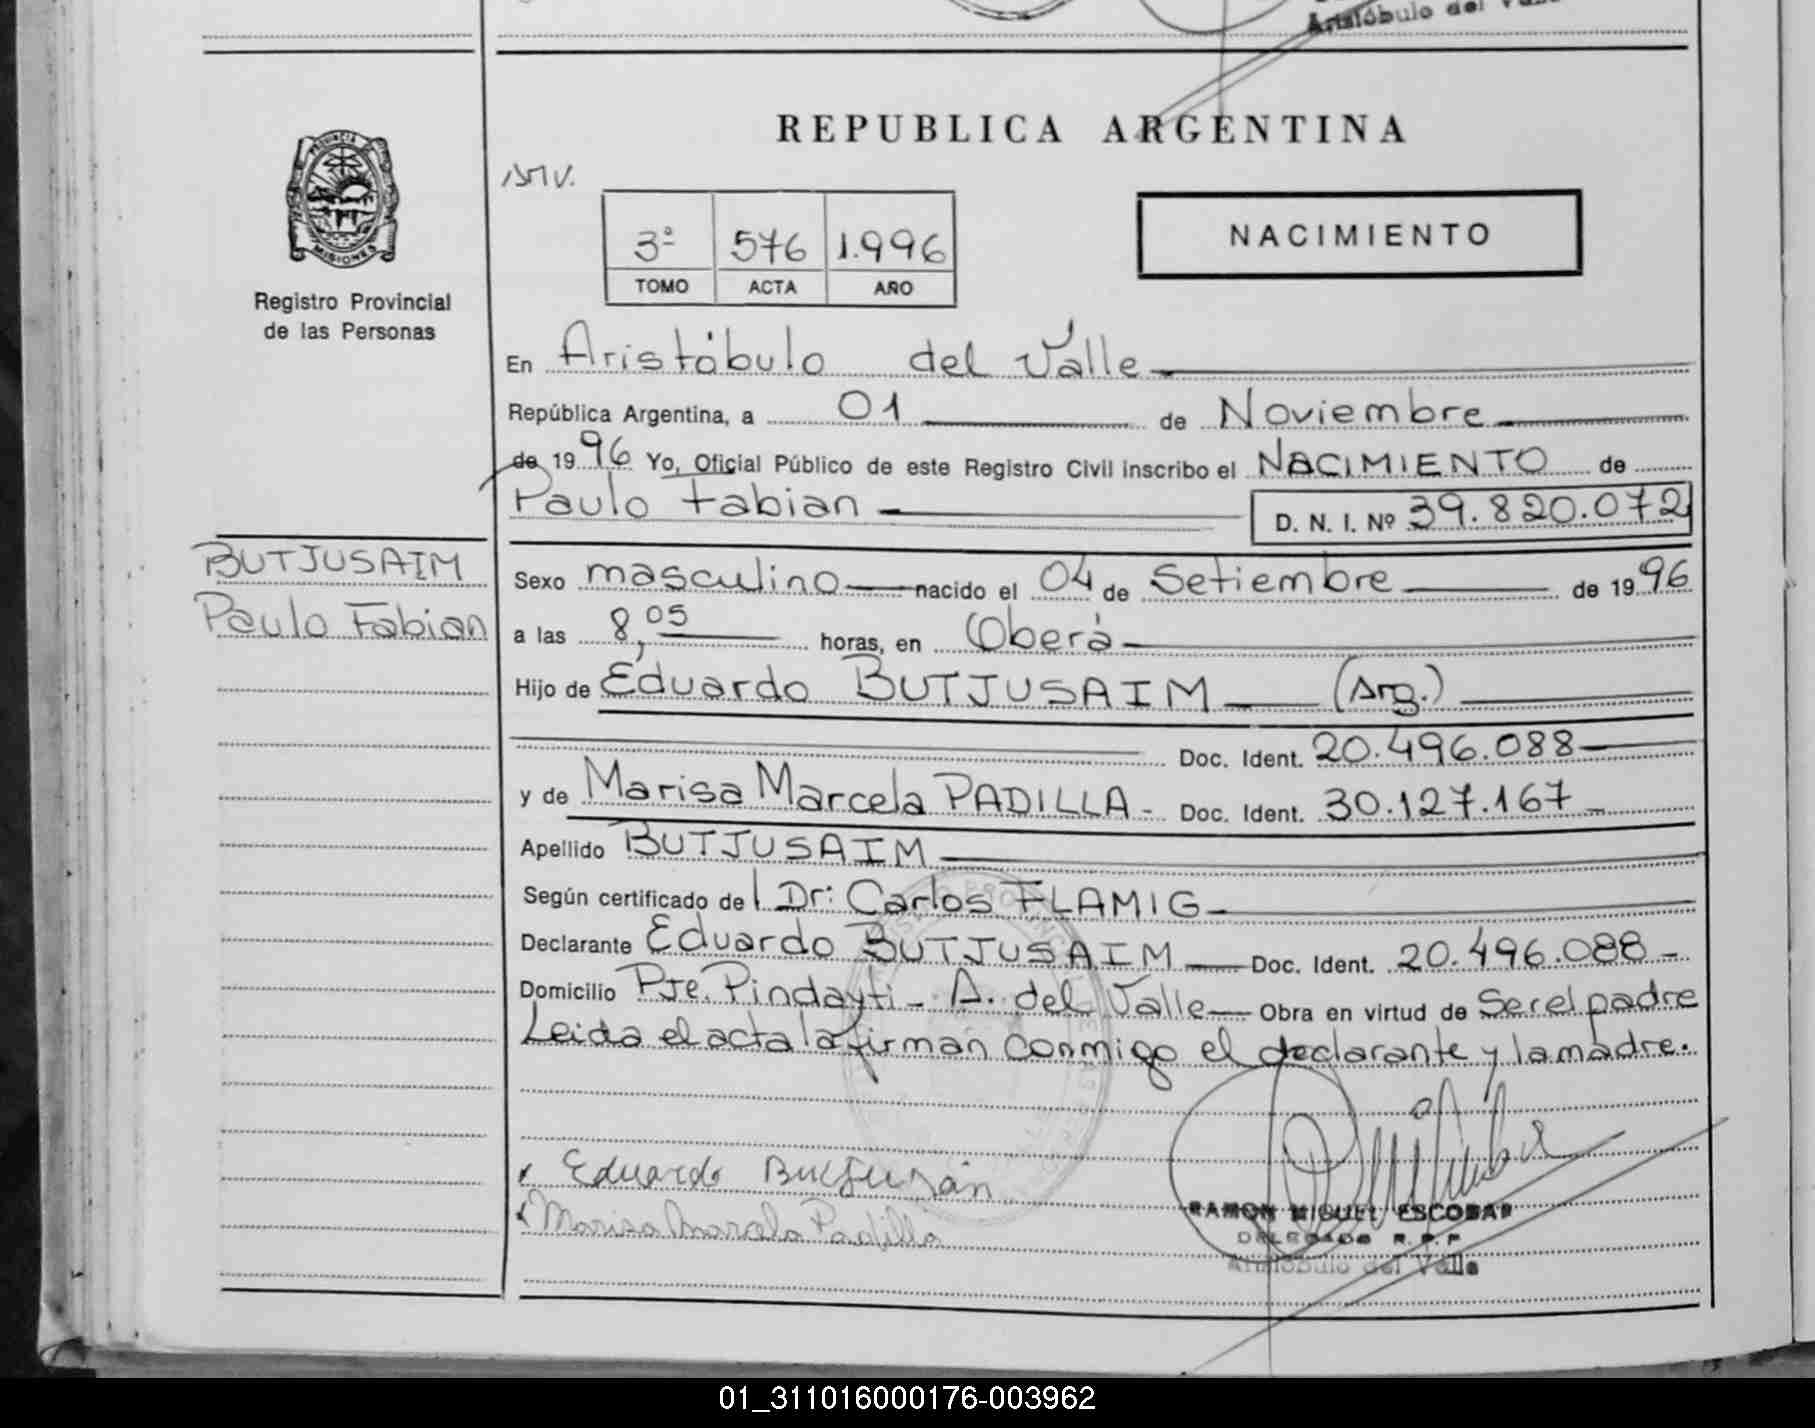 Aristóbulo del Valle
REPUBLICA ARGENTINA
PROVINCIA DE
MISIONES
Registro Provincial
de las Personas
3º 576 1.996
TOMO ACTA AÑO
NACIMIENTO
En Aristóbulo del Valle
República Argentina, a 01 de Noviembre
de 1996 Yo, Oficial Público de este Registro Civil inscribo el NACIMIENTO de
Paulo Fabian D. N. I. Nº 39.820.072
BUTJUSAIM
Paulo Fabian
Sexo masculino nacido el 04 de Setiembre de 1996
a las 8,05 horas, en Oberá
Hijo de Eduardo BUTJUSAIM (Arg.)
Doc. Ident. 20.496.088
y de Marisa Marcela PADILLA - Doc. Ident. 30.127.167
Apellido BUTJUSAIM
Según certificado del Dr: Carlos FLAMIG
Declarante Eduardo BUTJUSAIM Doc. Ident. 20.496.088
Domicilio Pje. Pindayti - A. del Valle Obra en virtud de Ser el padre
Leida el acta la firman conmigo el declarante y la madre.
Eduardo
Marisa Marcela Padilla
RAMON MIGUEL ESCOBAR
DELEGADO R.P.P
Aristóbulo del Valle
01_311016000176-003962